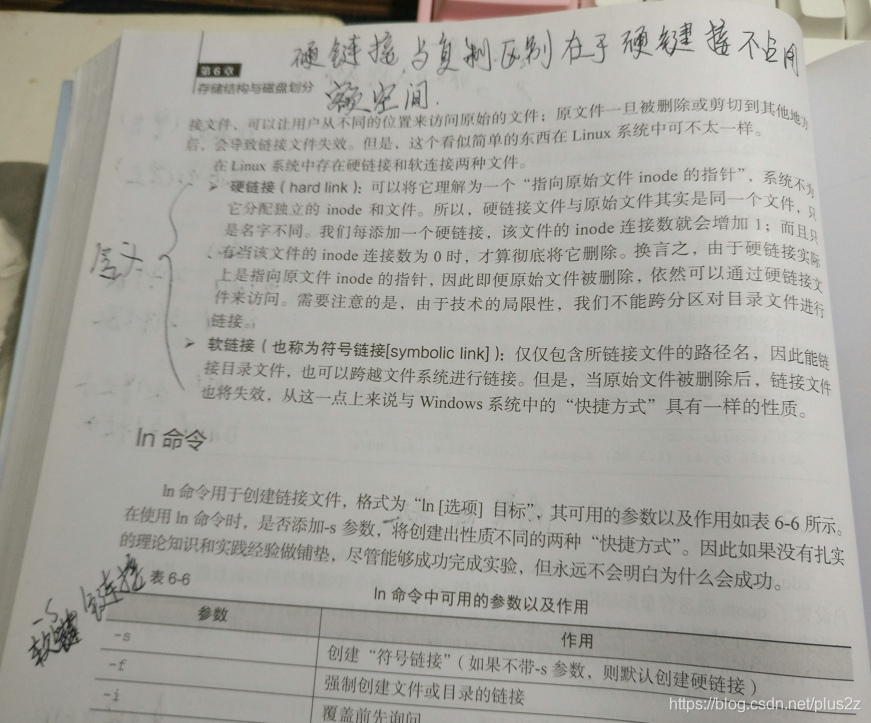 硬链接与复制区别在于硬链接不占用
额空间.
第6章
存储结构与磁盘划分
接文件，可以让用户从不同的位置来访问原始的文件；原文件一旦被删除或剪切到其他地方
后，会导致链接文件失效。但是，这个看似简单的东西在 Linux 系统中可不太一样。
在 Linux 系统中存在硬链接和软连接两种文件。
➢ 硬链接（hard link）：可以将它理解为一个“指向原始文件 inode 的指针”，系统不为
它分配独立的 inode 和文件。所以，硬链接文件与原始文件其实是同一个文件，只
是名字不同。我们每添加一个硬链接，该文件的 inode 连接数就会增加 1；而且只
有当该文件的 inode 连接数为 0 时，才算彻底将它删除。换言之，由于硬链接实际
上是指向原文件 inode 的指针，因此即便原始文件被删除，依然可以通过硬链接文
件来访问。需要注意的是，由于技术的局限性，我们不能跨分区对目录文件进行
链接。
➢ 软链接（也称为符号链接[symbolic link]）：仅仅包含所链接文件的路径名，因此能链
接目录文件，也可以跨越文件系统进行链接。但是，当原始文件被删除后，链接文件
也将失效，从这一点上来说与 Windows 系统中的“快捷方式”具有一样的性质。
ln 命令
ln 命令用于创建链接文件，格式为“ln [选项] 目标”，其可用的参数以及作用如表 6-6 所示。
在使用 ln 命令时，是否添加-s 参数，将创建出性质不同的两种“快捷方式”。因此如果没有扎实
的理论知识和实践经验做铺垫，尽管能够成功完成实验，但永远不会明白为什么会成功。
表 6-6 ln 命令中可用的参数以及作用
-s
软链
参数 作用
-s 创建“符号链接”（如果不带-s 参数，则默认创建硬链接）
-f 强制创建文件或目录的链接
-i 覆盖前先询问
https://blog.csdn.net/plus2z